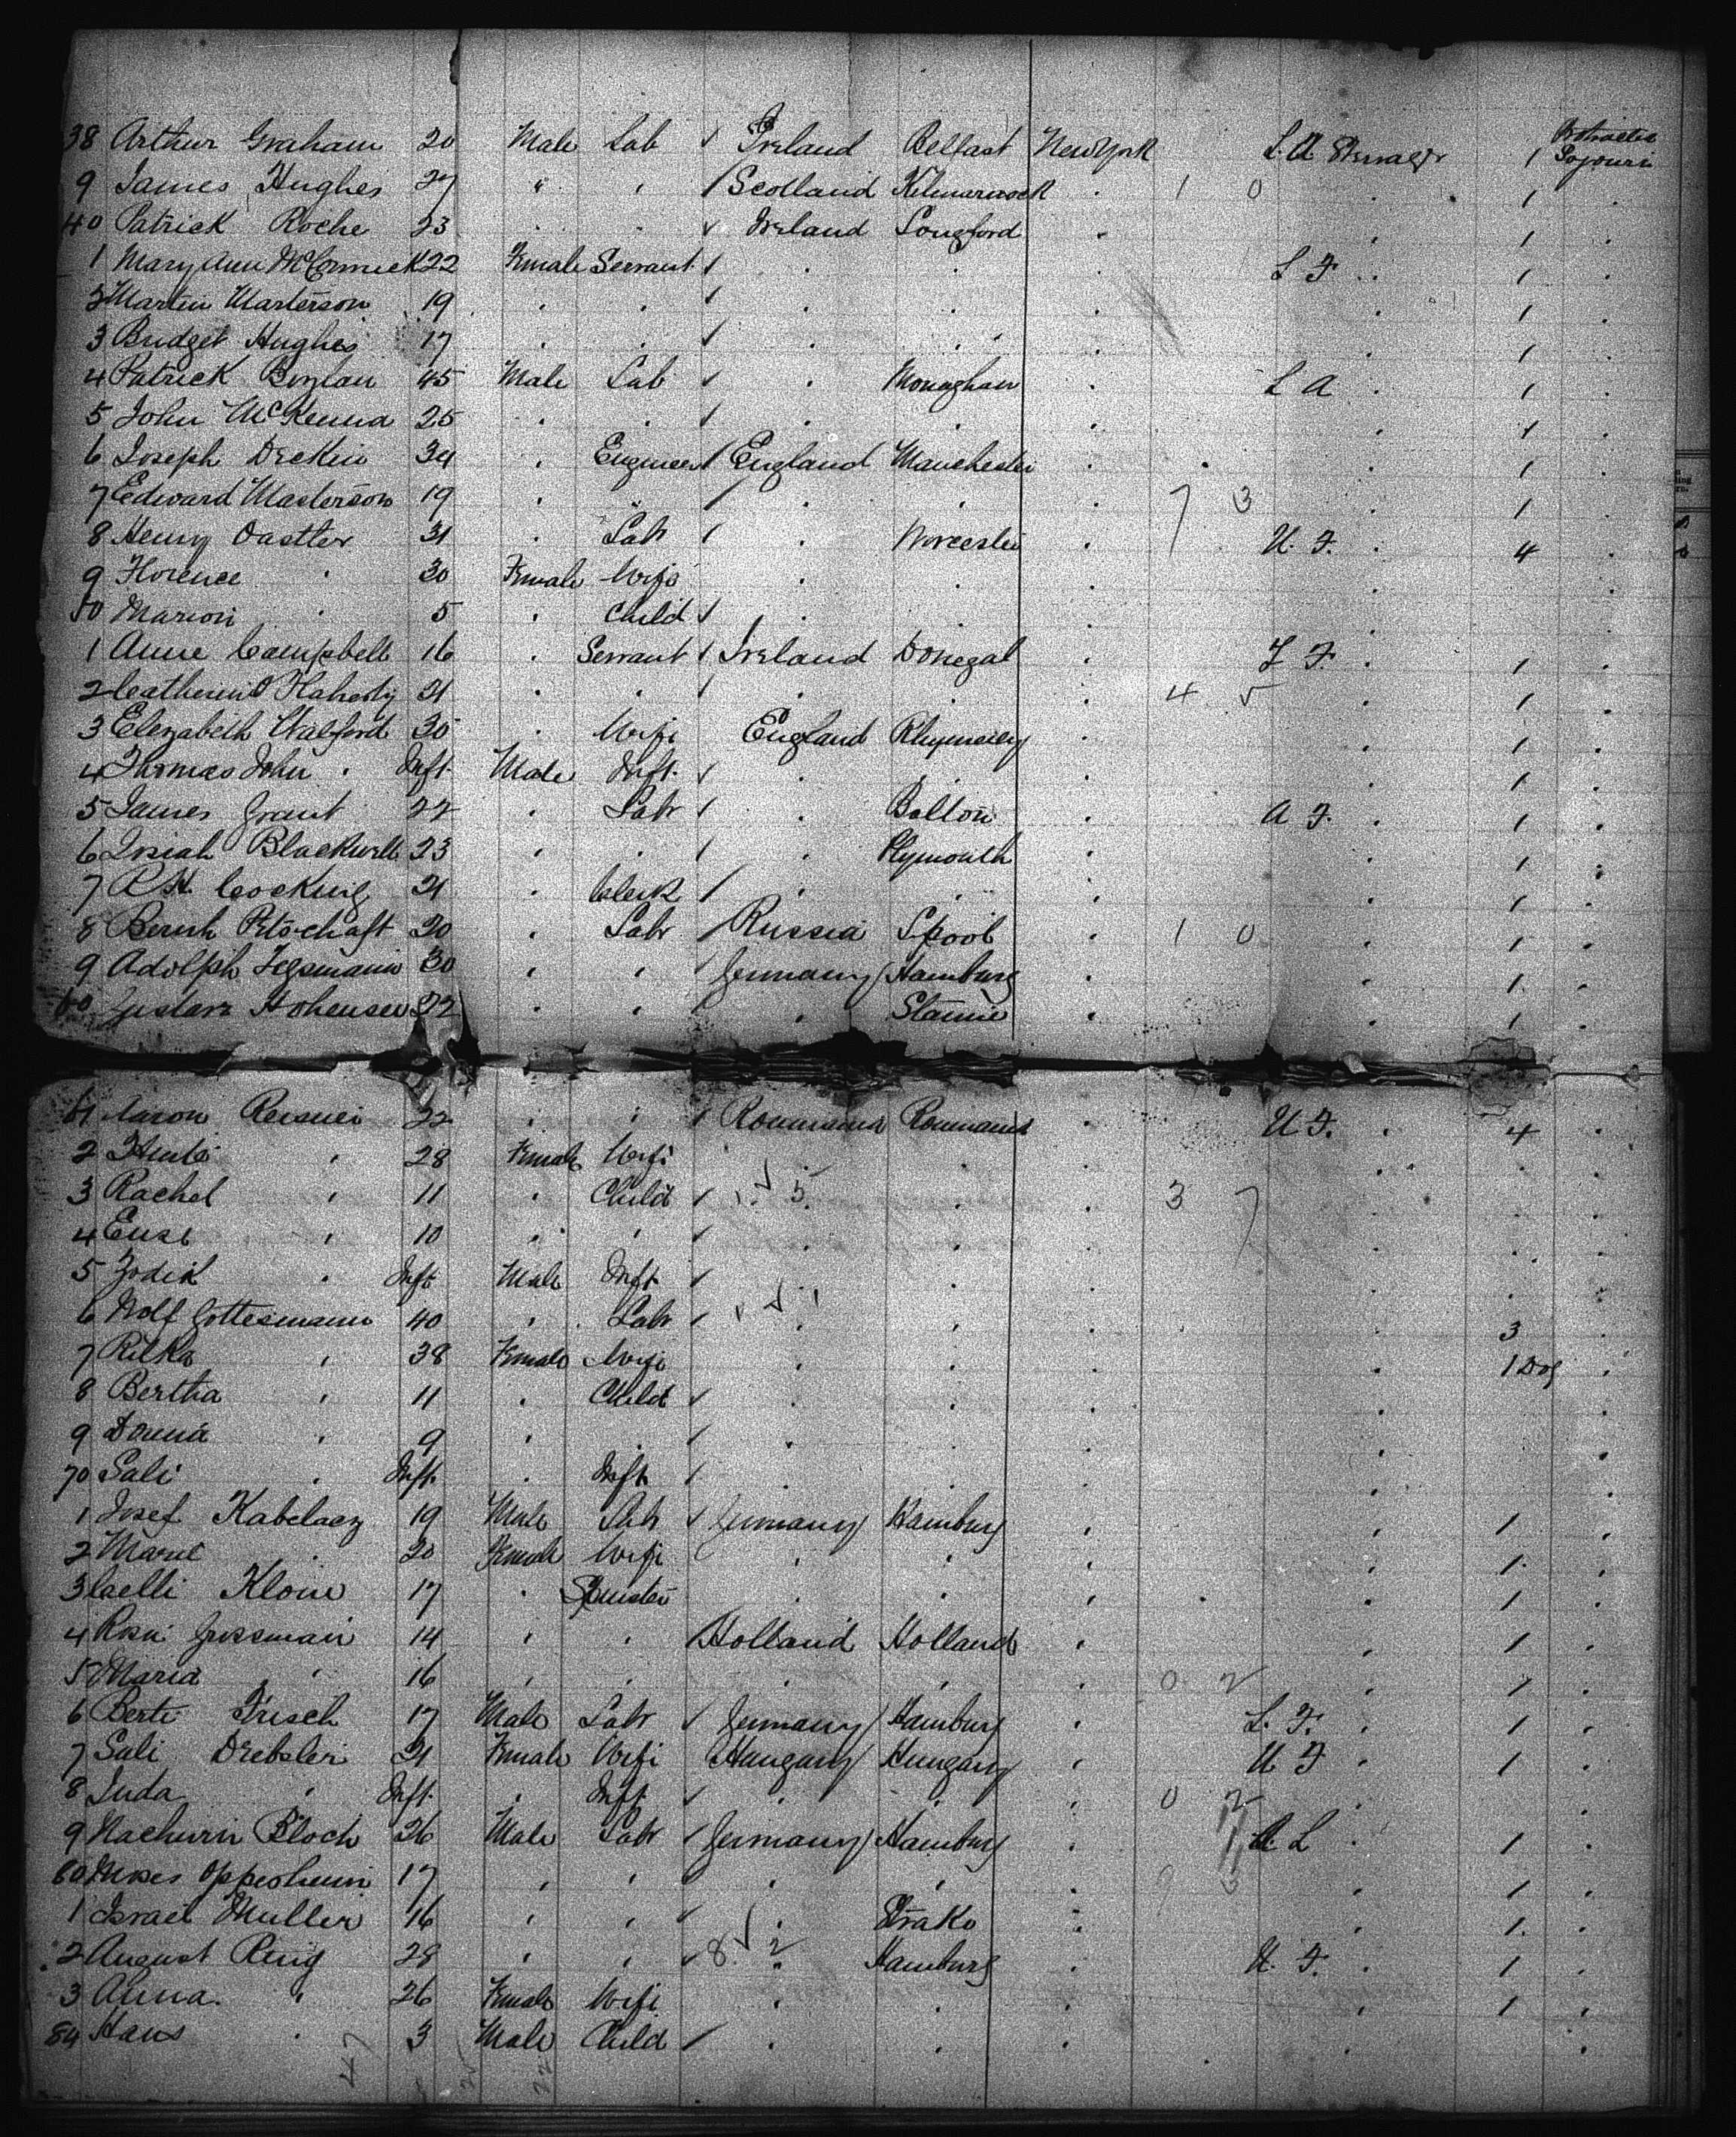 38 Arthur Graham 20 Male Lab Ireland Belfast New York L. A Steerage 1 Protracted Sojourn
9 James Hughes 27 " " Scotland Kilmarnock 1 0 1
40 Patrick Roche 23 Ireland Longford 1
1 Mary Ann McCormick 22 Female Servant L F 1
2 Masterson 19 1
3 Bridget Hughes 17 1
4 Patrick Boylan 45 Male Lab Monaghan L A 1
5 John McKenna 25 1
6 Joseph 34 Engineer England Manchester 1
7 Edward Masterson 19 7 3 1
8 Henry Oastler 31 Labr Worcester U. F. 4
9 Florence 30 Female Wife
50 Marion 5 Child
1 Anne Campbell 16 Servant Ireland Donegal L F 1
2 Catherine Flaherty 21 4 5 1
3 Elizabeth Walford 30 Wife England Rhymney 1
4 Thomas John Inft. Male Inft. 1
5 James Grant 22 Labr Bolton A F. 1
6 Blackwell 23 Plymouth 1
7 R. H. Cocking 21 Clerk 1
8 20 Labr Russia 1 0 1
9 Adolph 30 Germany Hamburg 1
60 Gustav 22 1
61 Aaron 22 Roumania Roumania U F. 4
2 28 Female Wife
3 Rachel 11 Child 5 3 7
4 10
5 Inft Male Inft
6 Wolf Gottesmann 40 Labr 1 3
7 Rifka 38 Female Wife 1
8 Bertha 11 Child
9 9
70 Sali Inft. Inft
1 Josef 19 Male Labr Germany Hamburg 1
2 Marie 20 Female Wife 1
3 17 Spinster 1
4 14 Holland Holland 1
5 Maria 16 0 2 1
6 17 Male Labr Germany Hamburg L. F. 1
7 Sali 21 Female Wife Hungary Hungary U F 1
8 Juda Inft. Inft. 0 2
9 Bloch 26 Male Labr Germany Hamburg A L 1
80 Moses Oppenheim 17 9 3 1
1 Israel Muller 16 1
2 August 28 8 2 Hamburg U. F. 1
3 26 Female Wife 1
84 Hans 3 Male Child
47